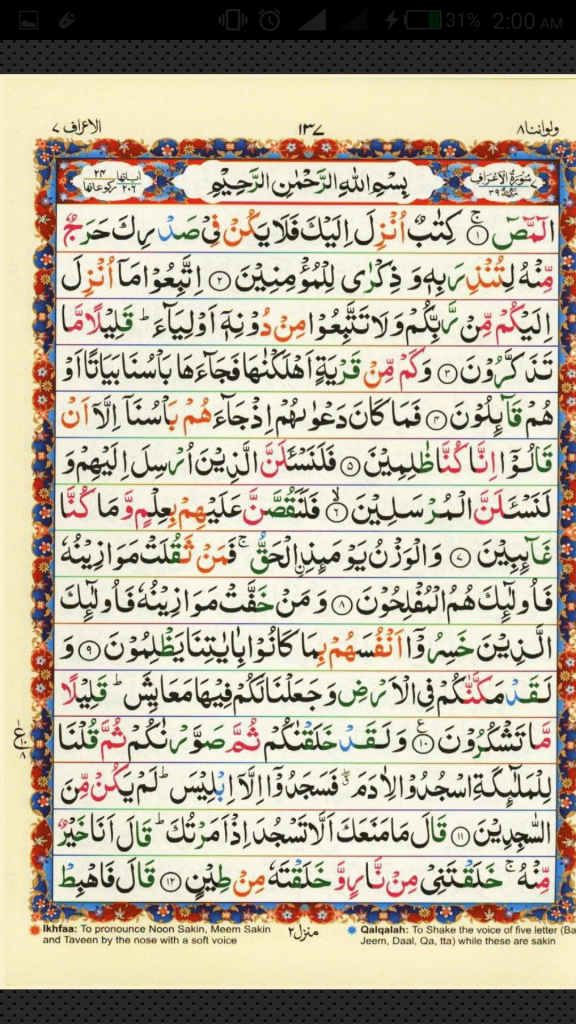 31% 2:00 AM
ولواننا ٨ ١٣٧ الاعراف ٧
سُوْرَةُ الْاَعْرَافِ مَكِّيَّةٌ ٣٩ بِسْمِ اللهِ الرَّحْمٰنِ الرَّحِيْمِ اٰيَاتُهَا ٢٠٦ رُكُوْعَاتُهَا ٢٤
الٓمّٓصٓ ۚ﴿١﴾ كِتٰبٌ اُنْزِلَ اِلَيْكَ فَلَا يَكُنْ فِيْ صَدْرِكَ حَرَجٌ
مِّنْهُ لِتُنْذِرَ بِهٖ وَ ذِكْرٰى لِلْمُؤْمِنِيْنَ ﴿٢﴾ اِتَّبِعُوْا مَاۤ اُنْزِلَ
اِلَيْكُمْ مِّنْ رَّبِّكُمْ وَلَا تَتَّبِعُوْا مِنْ دُوْنِهٖۤ اَوْلِيَآءَ ؕ قَلِيْلًا مَّا
تَذَكَّرُوْنَ ﴿٣﴾ وَكَمْ مِّنْ قَرْيَةٍ اَهْلَكْنٰهَا فَجَآءَهَا بَاْسُنَا بَيَاتًا اَوْ
هُمْ قَآئِلُوْنَ ﴿٤﴾ فَمَا كَانَ دَعْوٰىهُمْ اِذْ جَآءَهُمْ بَاْسُنَاۤ اِلَّاۤ اَنْ
قَالُوْۤا اِنَّا كُنَّا ظٰلِمِيْنَ ﴿٥﴾ فَلَنَسْـَٔلَنَّ الَّذِيْنَ اُرْسِلَ اِلَيْهِمْ وَ
لَنَسْـَٔلَنَّ الْمُرْسَلِيْنَ ۙ﴿٦﴾ فَلَنَقُصَّنَّ عَلَيْهِمْ بِعِلْمٍ وَّمَا كُنَّا
غَآئِبِيْنَ ﴿٧﴾ وَالْوَزْنُ يَوْمَئِذِ اِ۟لْحَقُّ ۚ فَمَنْ ثَقُلَتْ مَوَازِيْنُهٗ
فَاُولٰٓئِكَ هُمُ الْمُفْلِحُوْنَ ﴿٨﴾ وَمَنْ خَفَّتْ مَوَازِيْنُهٗ فَاُولٰٓئِكَ
الَّذِيْنَ خَسِرُوْۤا اَنْفُسَهُمْ بِمَا كَانُوْا بِاٰيٰتِنَا يَظْلِمُوْنَ ﴿٩﴾ وَ
لَقَدْ مَكَّنّٰكُمْ فِي الْاَرْضِ وَجَعَلْنَا لَكُمْ فِيْهَا مَعَايِشَ ؕ قَلِيْلًا
مَّا تَشْكُرُوْنَ ﴿١٠﴾ وَلَقَدْ خَلَقْنٰكُمْ ثُمَّ صَوَّرْنٰكُمْ ثُمَّ قُلْنَا
لِلْمَلٰٓئِكَةِ اسْجُدُوْا لِاٰدَمَ ۖ فَسَجَدُوْۤا اِلَّاۤ اِبْلِيْسَ ؕ لَمْ يَكُنْ مِّنَ
السّٰجِدِيْنَ ﴿١١﴾ قَالَ مَا مَنَعَكَ اَلَّا تَسْجُدَ اِذْ اَمَرْتُكَ ؕ قَالَ اَنَا خَيْرٌ
مِّنْهُ ۚ خَلَقْتَنِيْ مِنْ نَّارٍ وَّ خَلَقْتَهٗ مِنْ طِيْنٍ ﴿١٢﴾ قَالَ فَاهْبِطْ
Ikhfaa: To pronounce Noon Sakin, Meem Sakin
and Taveen by the nose with a soft voice
منزل ٢
Qalqalah: To Shake the voice of five letter (Ba
Jeem, Daal, Qa, tta) while these are sakin